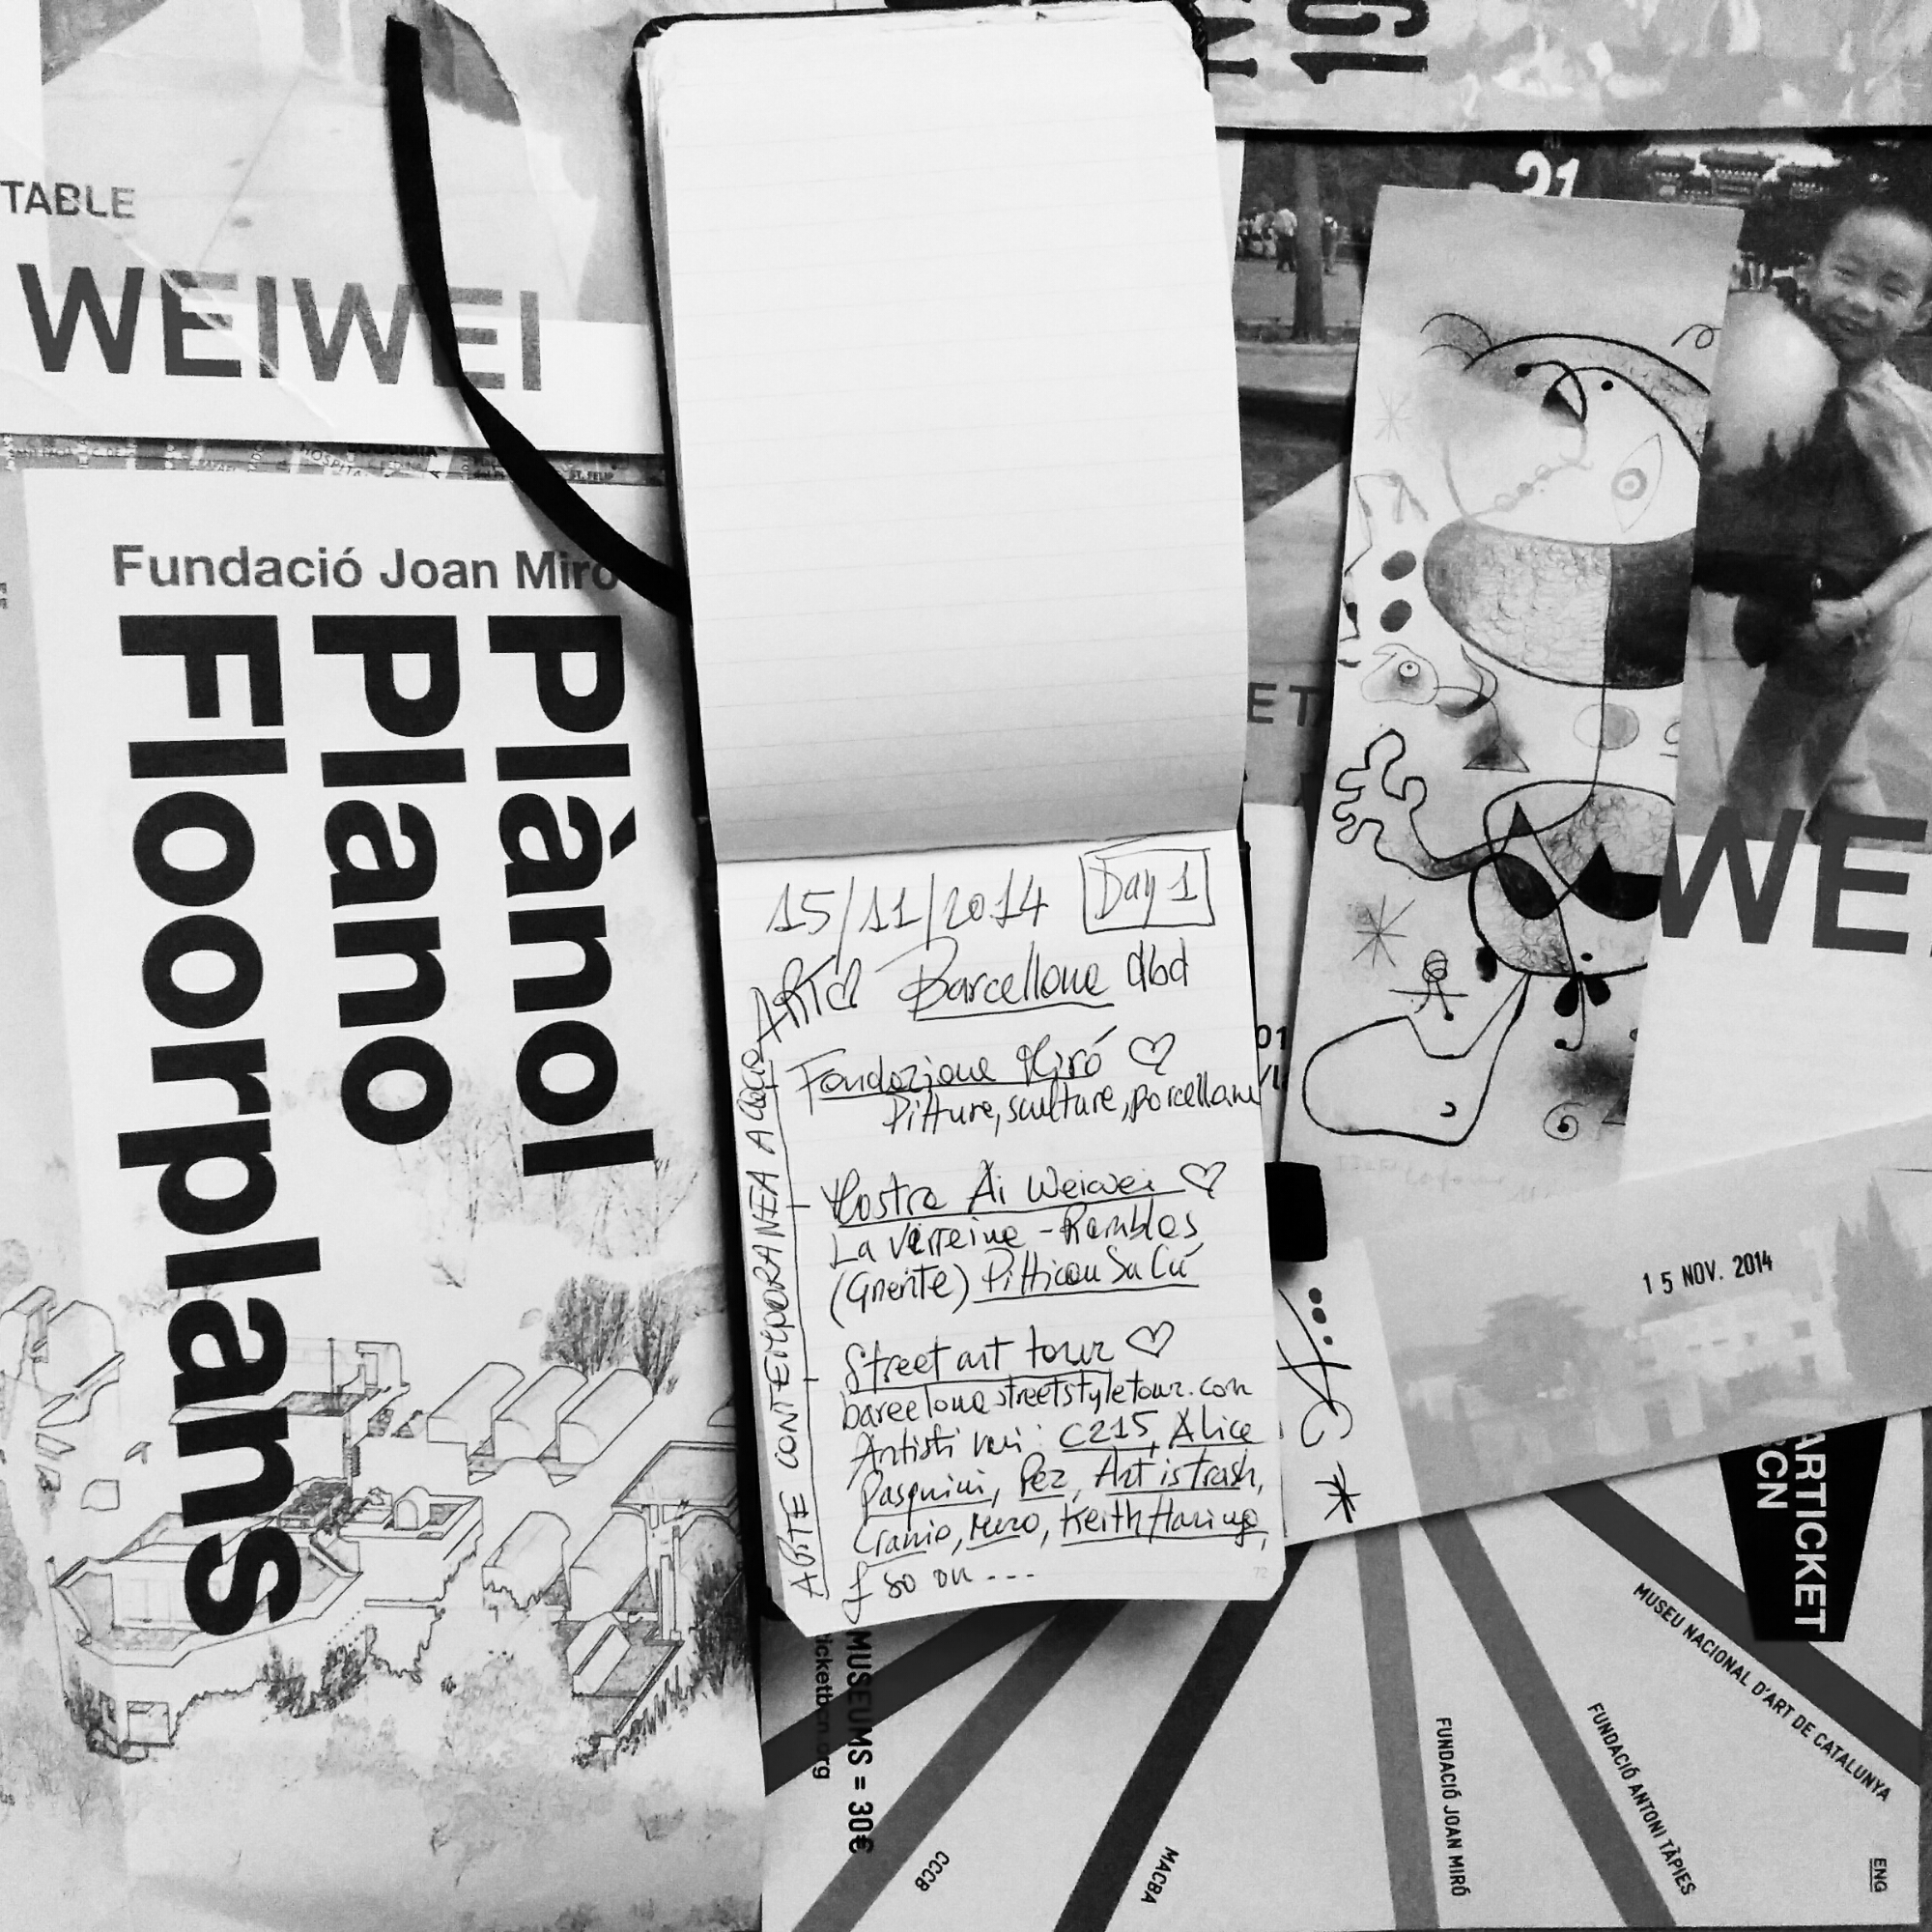 TABLE
WEIWEI
Fundació Joan Miró
Plànol
Plano
Floorplans
19
31
WE
15/11/2014 Day 1
Barcellona
Fondazione Miró ♡
Pitture, sculture, porcellane
Mostra Ai Weiwei ♡
La Virreina - Ramblas
Street art tour ♡
barcelonastreetstyletour.com
Artisti vari: C215, Alice
Pasquini, Pez, Art is trash,
Cranio, Keith Haring,
& so on...
CONTEMPORANEA
15 NOV. 2014
ARTICKET
BCN
MUSEUMS = 30€
ticketbcn.org
CCCB
MACBA
FUNDACIÓ JOAN MIRÓ
FUNDACIÓ ANTONI TÀPIES
MUSEU NACIONAL D'ART DE CATALUNYA
ENG